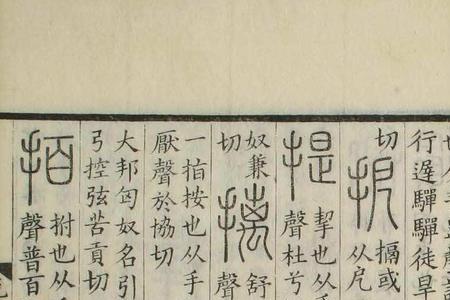 行遟驒驒徒旱
切
㧖
搹或
从戹
提
挈也从手
聲杜兮
奴兼
切
摛
舒
聲
一指按也从手
厭聲於協切
大邦匈奴名引
弓控弦苦貢切
拍
拊也从手
聲普百